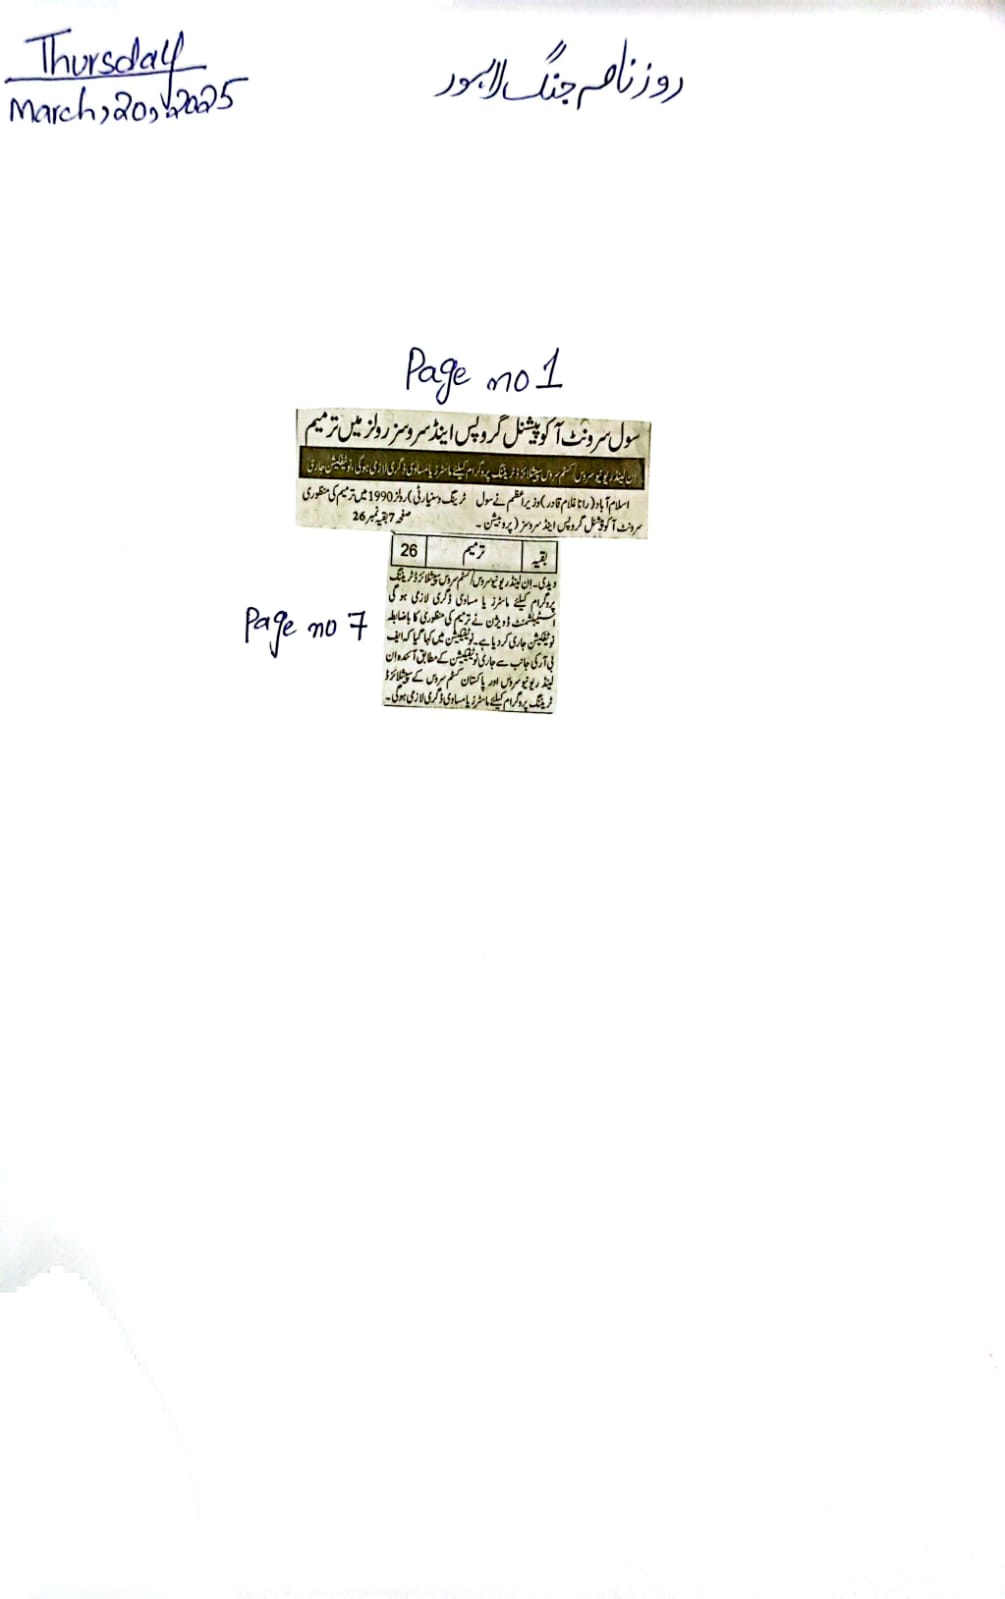 Thursday
March, 20, 2025
روزنامہ جنگ لاہور
Page no 1
سول سرونٹ آکوپیشنل گروپس اینڈ سروسز رولز میں ترمیم
ان لینڈ ریونیو سروس کسٹم سروس سپیشلائزڈ ٹریننگ پروگرام کیلئے ماسٹرز یا مساوی ڈگری لازمی ہوگی، نوٹیفکیشن جاری
اسلام آباد (رانا غلام قادر) وزیراعظم نے سول
سرونٹ آکوپیشنل گروپس اینڈ سروسز (پروبیشن۔
ٹریننگ و سنیارٹی) رولز 1990 میں ترمیم کی منظوری
صفحہ 7 بقیہ نمبر 26
بقیہ ترمیم 26
Page no 7
دیدی۔ ان لینڈ ریونیو سروس/کسٹم سروس سپیشلائزڈ ٹریننگ
پروگرام کیلئے ماسٹرز یا مساوی ڈگری لازمی ہو گی
اسٹیبلشمنٹ ڈویژن نے ترمیم کی منظوری کا باضابطہ
نوٹیفکیشن جاری کردیا ہے۔ نوٹیفکیشن میں کہا گیا کہ ایف
بی آر کی جانب سے جاری نوٹیفکیشن کے مطابق آئندہ ان
لینڈ ریونیو سروس اور پاکستان کسٹم سروس کے سپیشلائزڈ
ٹریننگ پروگرام کیلئے ماسٹرز یا مساوی ڈگری لازمی ہوگی۔